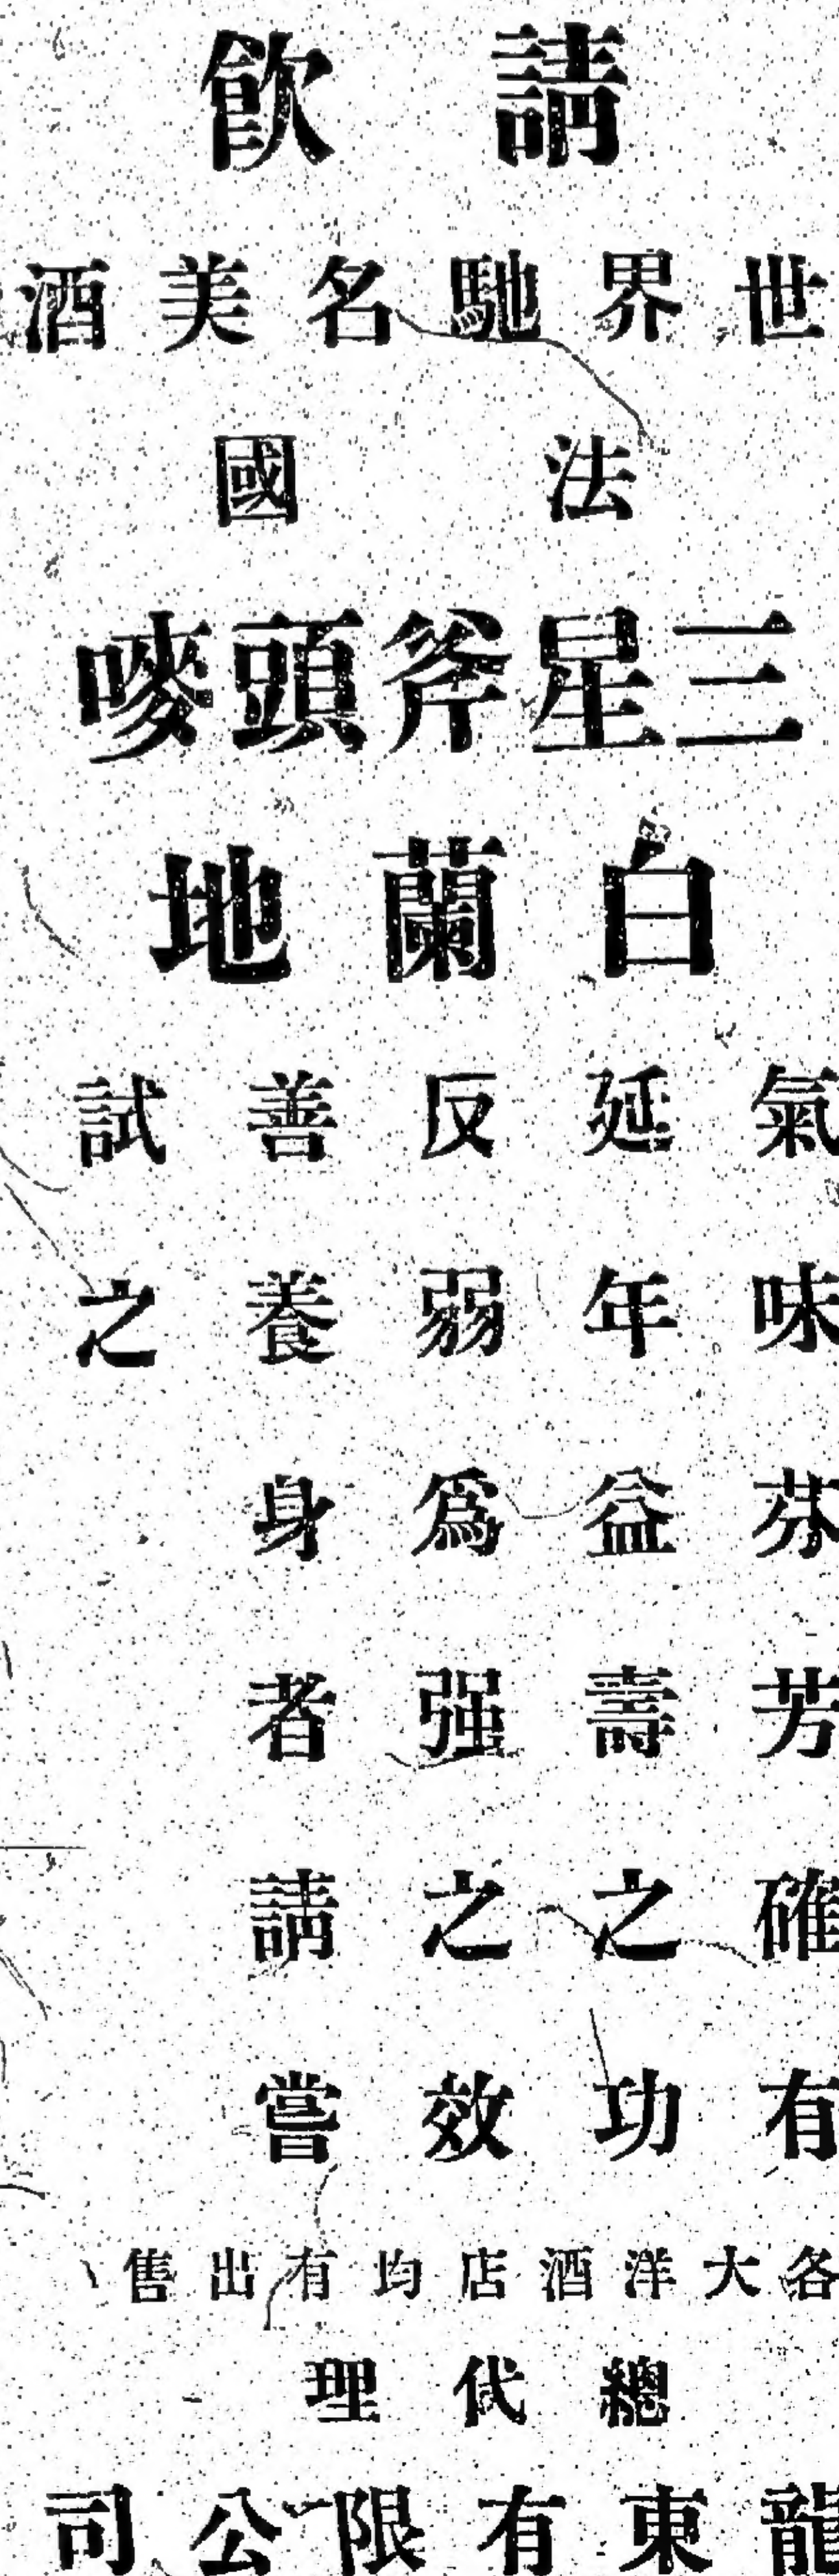 請飲
世界馳名美酒
法國
三星斧頭嘜
白蘭地
氣味芬芳確有
延年益壽之功
反弱為强之效
善養身者請嘗
試之
各大洋酒店均有出售
總代理
龍東有限公司